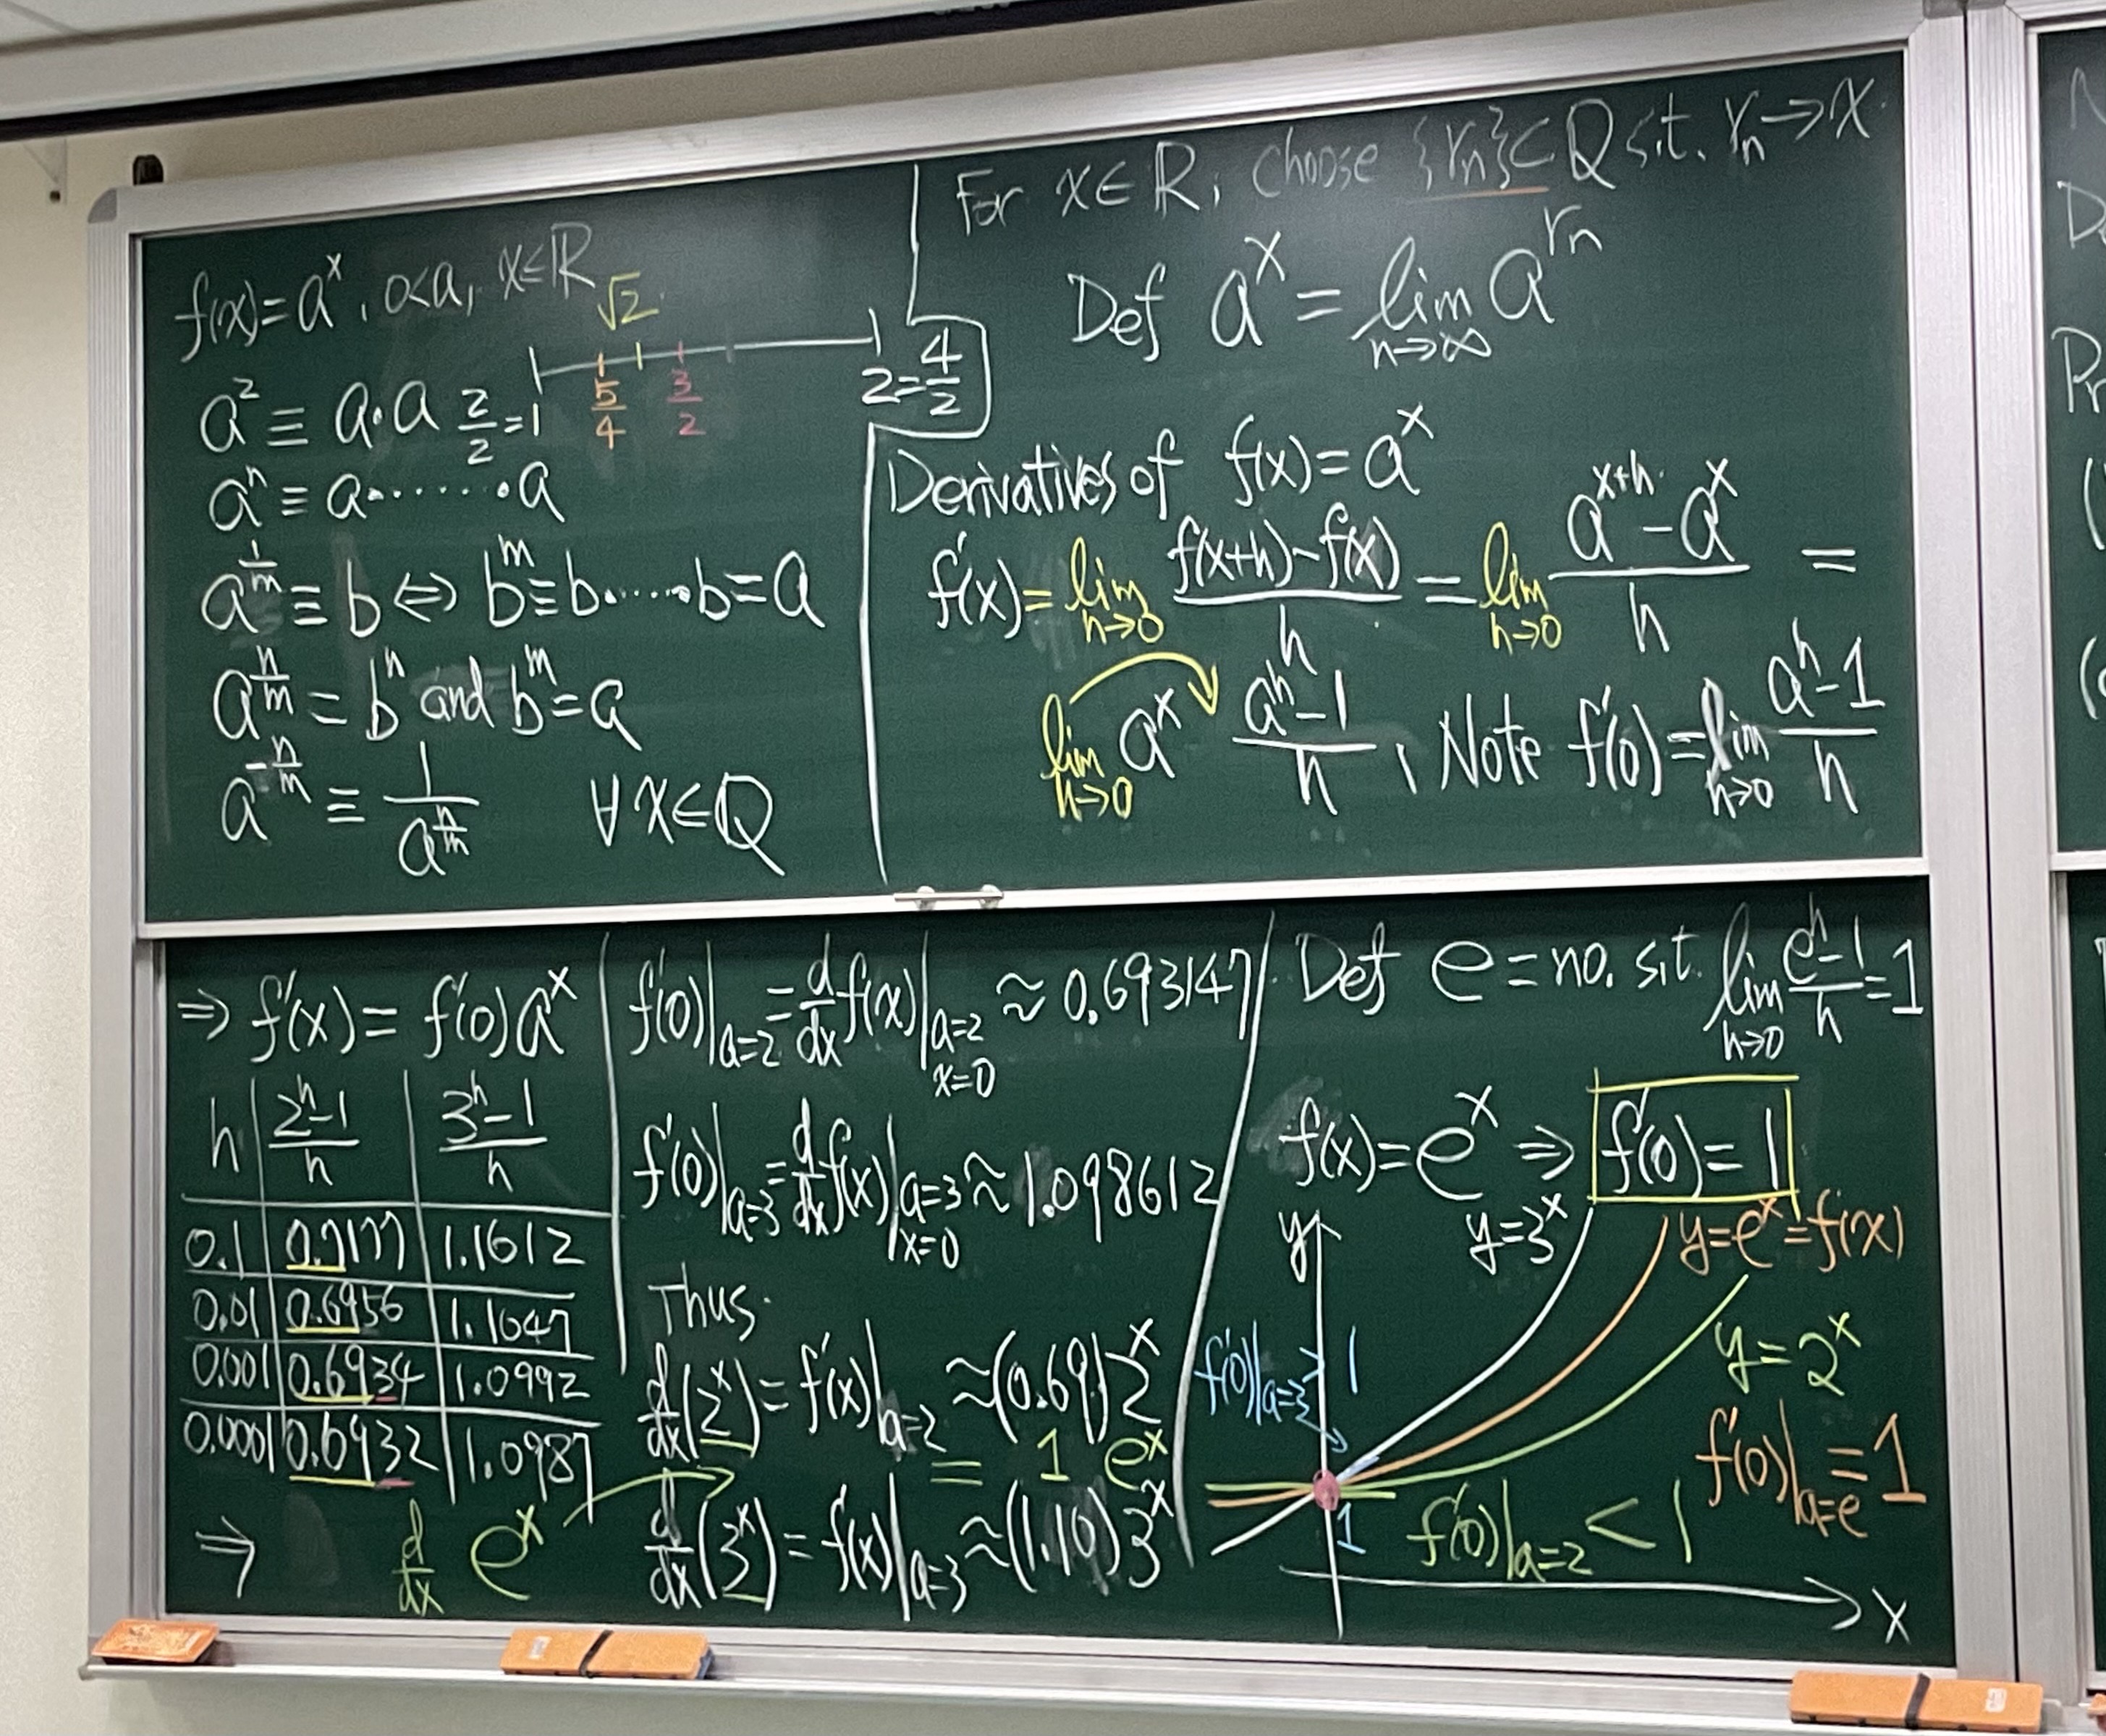 f(x)=a^x, 0<a, x∈ℝ
√2
2/2=1 5/4 3/2 2=4/2
a^2 ≡ a·a
a^n ≡ a·······a
a^(1/m) ≡ b ⇔ b^m ≡ b·····b = a
a^(n/m) = b^n and b^m = a
a^(-n/m) ≡ 1/a^(n/m) ∀x∈Q
For x∈R, choose {r_n}⊂Q s.t. r_n→x.
Def a^x = lim_(n→∞) a^(r_n)
Derivatives of f(x)=a^x
f'(x)= lim_(h→0) (f(x+h)-f(x))/h = lim_(h→0) (a^(x+h)-a^x)/h =
lim_(h→0) a^x (a^h-1)/h, Note f'(0)=lim_(h→0) (a^h-1)/h
⇒ f'(x)= f'(0)a^x
h | (2^h-1)/h | (3^h-1)/h
0.1 | 0.7177 | 1.1612
0.01 | 0.6956 | 1.1047
0.001 | 0.6934 | 1.0992
0.0001 | 0.6932 | 1.0987
⇒ d/dx e^x
f'(0)|_(a=2) = d/dx f(x)|_(a=2, x=0) ≈ 0.693147
f'(0)|_(a=3) = d/dx f(x)|_(a=3, x=0) ≈ 1.098612
Thus.
d/dx(2^x) = f'(x)|_(a=2) ≈ (0.69)2^x
= 1 e^x
d/dx(3^x) = f'(x)|_(a=3) ≈ (1.10)3^x
Def e = no. s.t. lim_(h→0) (e^h-1)/h = 1
f(x)=e^x ⇒ f'(0)=1
y
y=3^x
y=e^x=f(x)
y=2^x
f'(0)|_(a=3) > 1
f'(0)|_(a=e) = 1
1
f'(0)|_(a=2) < 1
x